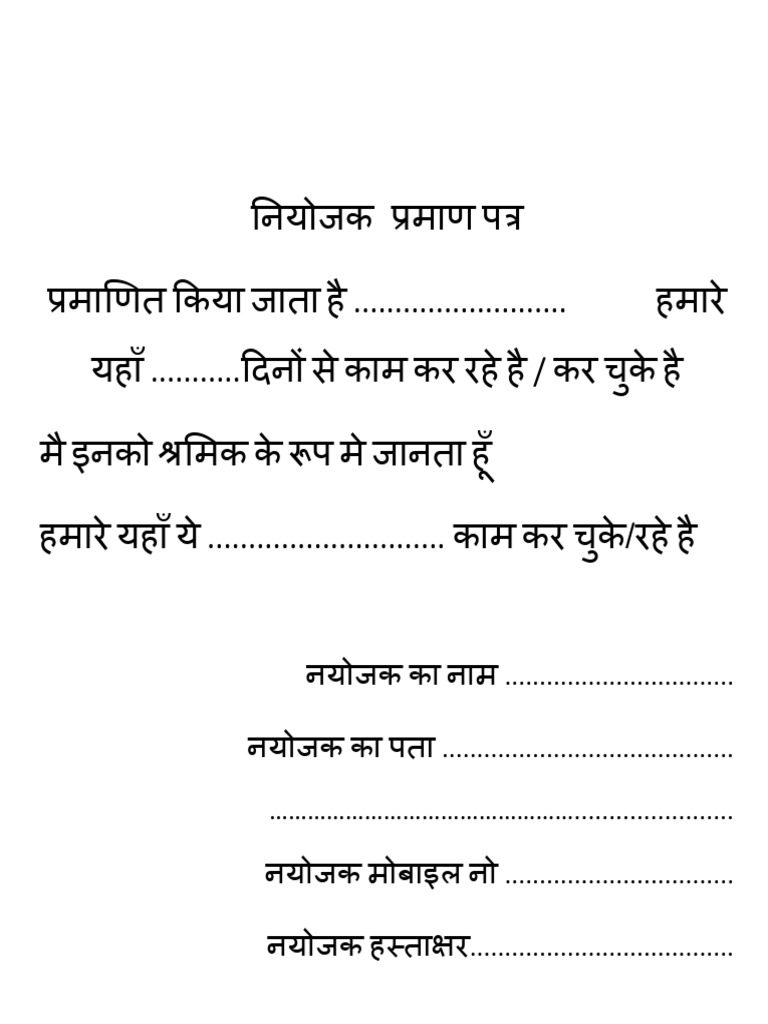 नियोजक प्रमाण पत्र
प्रमाणित किया जाता है .......................... हमारे
यहाँ ...........दिनों से काम कर रहे है / कर चुके है
मै इनको श्रमिक के रूप मे जानता हूँ
हमारे यहाँ ये ............................. काम कर चुके/रहे है
नयोजक का नाम .................................
नयोजक का पता ..........................................
...................................................................
नयोजक मोबाइल नो .................................
नयोजक हस्ताक्षर......................................